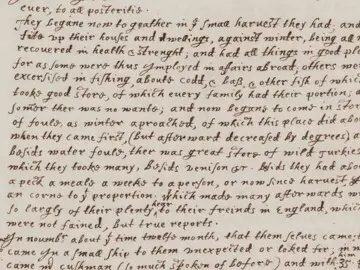 euer, to all posteritie.
They begane now to gather in yͤ small harvest they had. and
fitte up their houses and dwelings, against winter, being all
recovered in health & strenght; and had all things in good
for as some were thus imployed in affairs abroad; others were
excersised in fishing, aboute codd, & bass, & other fish, of which
tooke good store, of which every family had their portion;
somer ther was no wante; and now begane to come in store
of foule, as winter aproached, of which this place did
when they came first, (but afterward decreased by degrees)
besids water foule, ther was great store of wild Turkies
which they tooke many, besids venison &c. besids they had
a peck a meale a weeke to a person, or now since harvest,
an corne to yͭ proportion, which made many afterwards
so largly of their plenty, to their freinds in England, which
were not fained, but true reports.
In novembr about yͭ time twelfe month, that them selves came
came in a small ship to them unexpected or loked for;
came mr cushman (so much spoken of before) and with